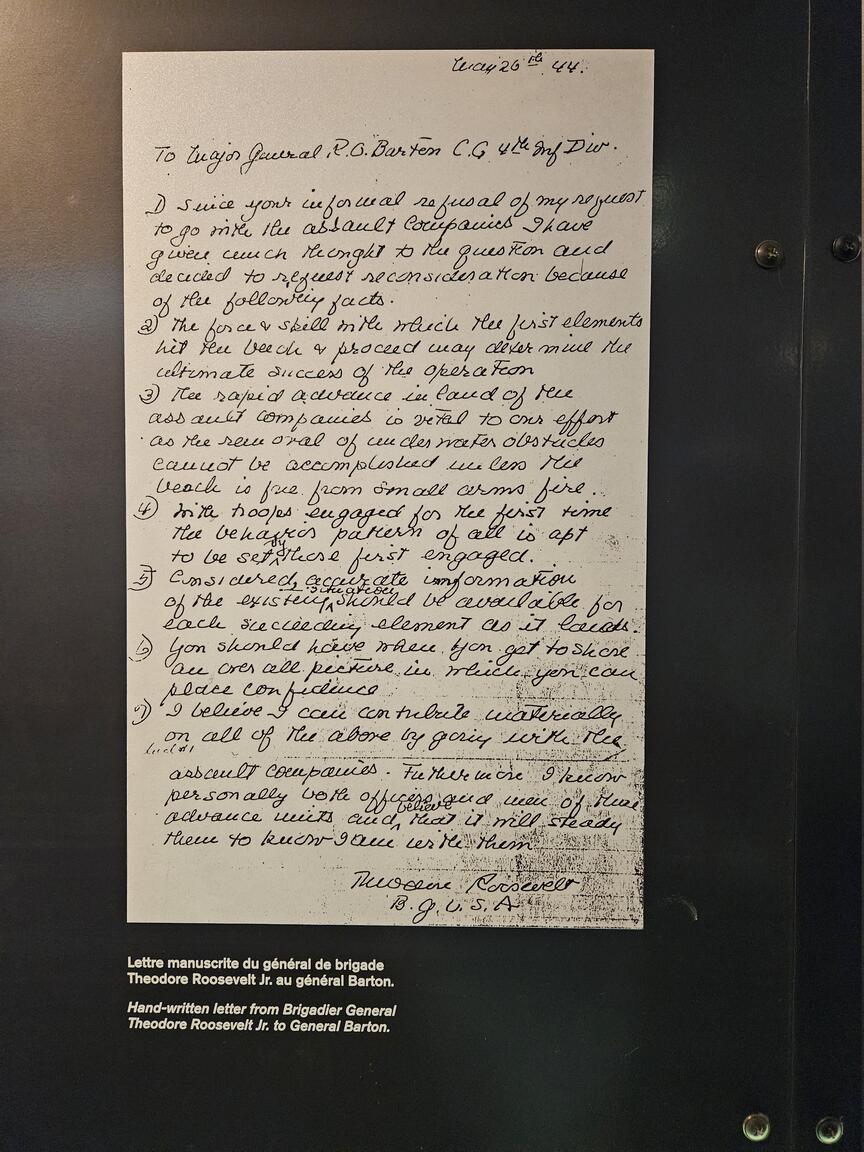 May 26th 44.
To Major General R.O. Barton C.G 4th Inf Div.
1) Since your informal refusal of my request
to go with the assault companies I have
given much thought to the question and
decided to request reconsideration because
of the following facts.
2) The force & skill with which the first elements
hit the beech & proceed may determine the
ultimate success of the operation
3) The rapid advance inland of the
assault companies is vital to our effort
as the removal of underwater obstacles
cannot be accomplished unless the
beach is free from small arms fire.
4) With troops engaged for the first time
the behavior pattern of all is apt
to be set by those first engaged.
5) Considered, accurate information
of the existing situation should be available for
each succeeding element as it lands.
6) You should have when you get to shore
an over all picture in which you can
place confidence
7) I believe I can contribute materially
on all of the above by going with the
assault companies. Furthermore I know
personally both officers and men of these
advance units and believe that it will steady
them to know I am with them
Theodore Roosevelt
B.G.U.S.A
Lettre manuscrite du général de brigade
Theodore Roosevelt Jr. au général Barton.
Hand-written letter from Brigadier General
Theodore Roosevelt Jr. to General Barton.